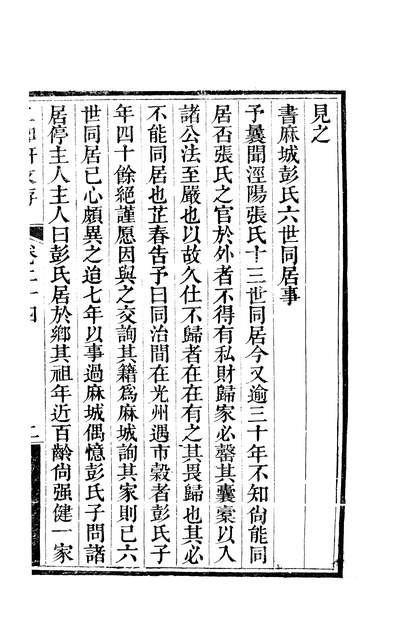 見之
書麻城彭氏六世同居事
予曩聞涇陽張氏十三世同居今又逾三十年不知尙能同
居否張氏之官於外者不得有私財歸家必罄其囊橐以入
諸公法至嚴也以故久仕不歸者在在有之其畏歸也其必
不能同居也芷春告予曰同治間在光州遇市穀者彭氏子
年四十餘絕謹愿因與之交詢其籍爲麻城詢其家則已六
世同居已心頗異之迨七年以事過麻城偶憶彭氏子問諸
居停主人主人曰彭氏居於鄉其祖年近百齡尙强健一家
卷二十四
二